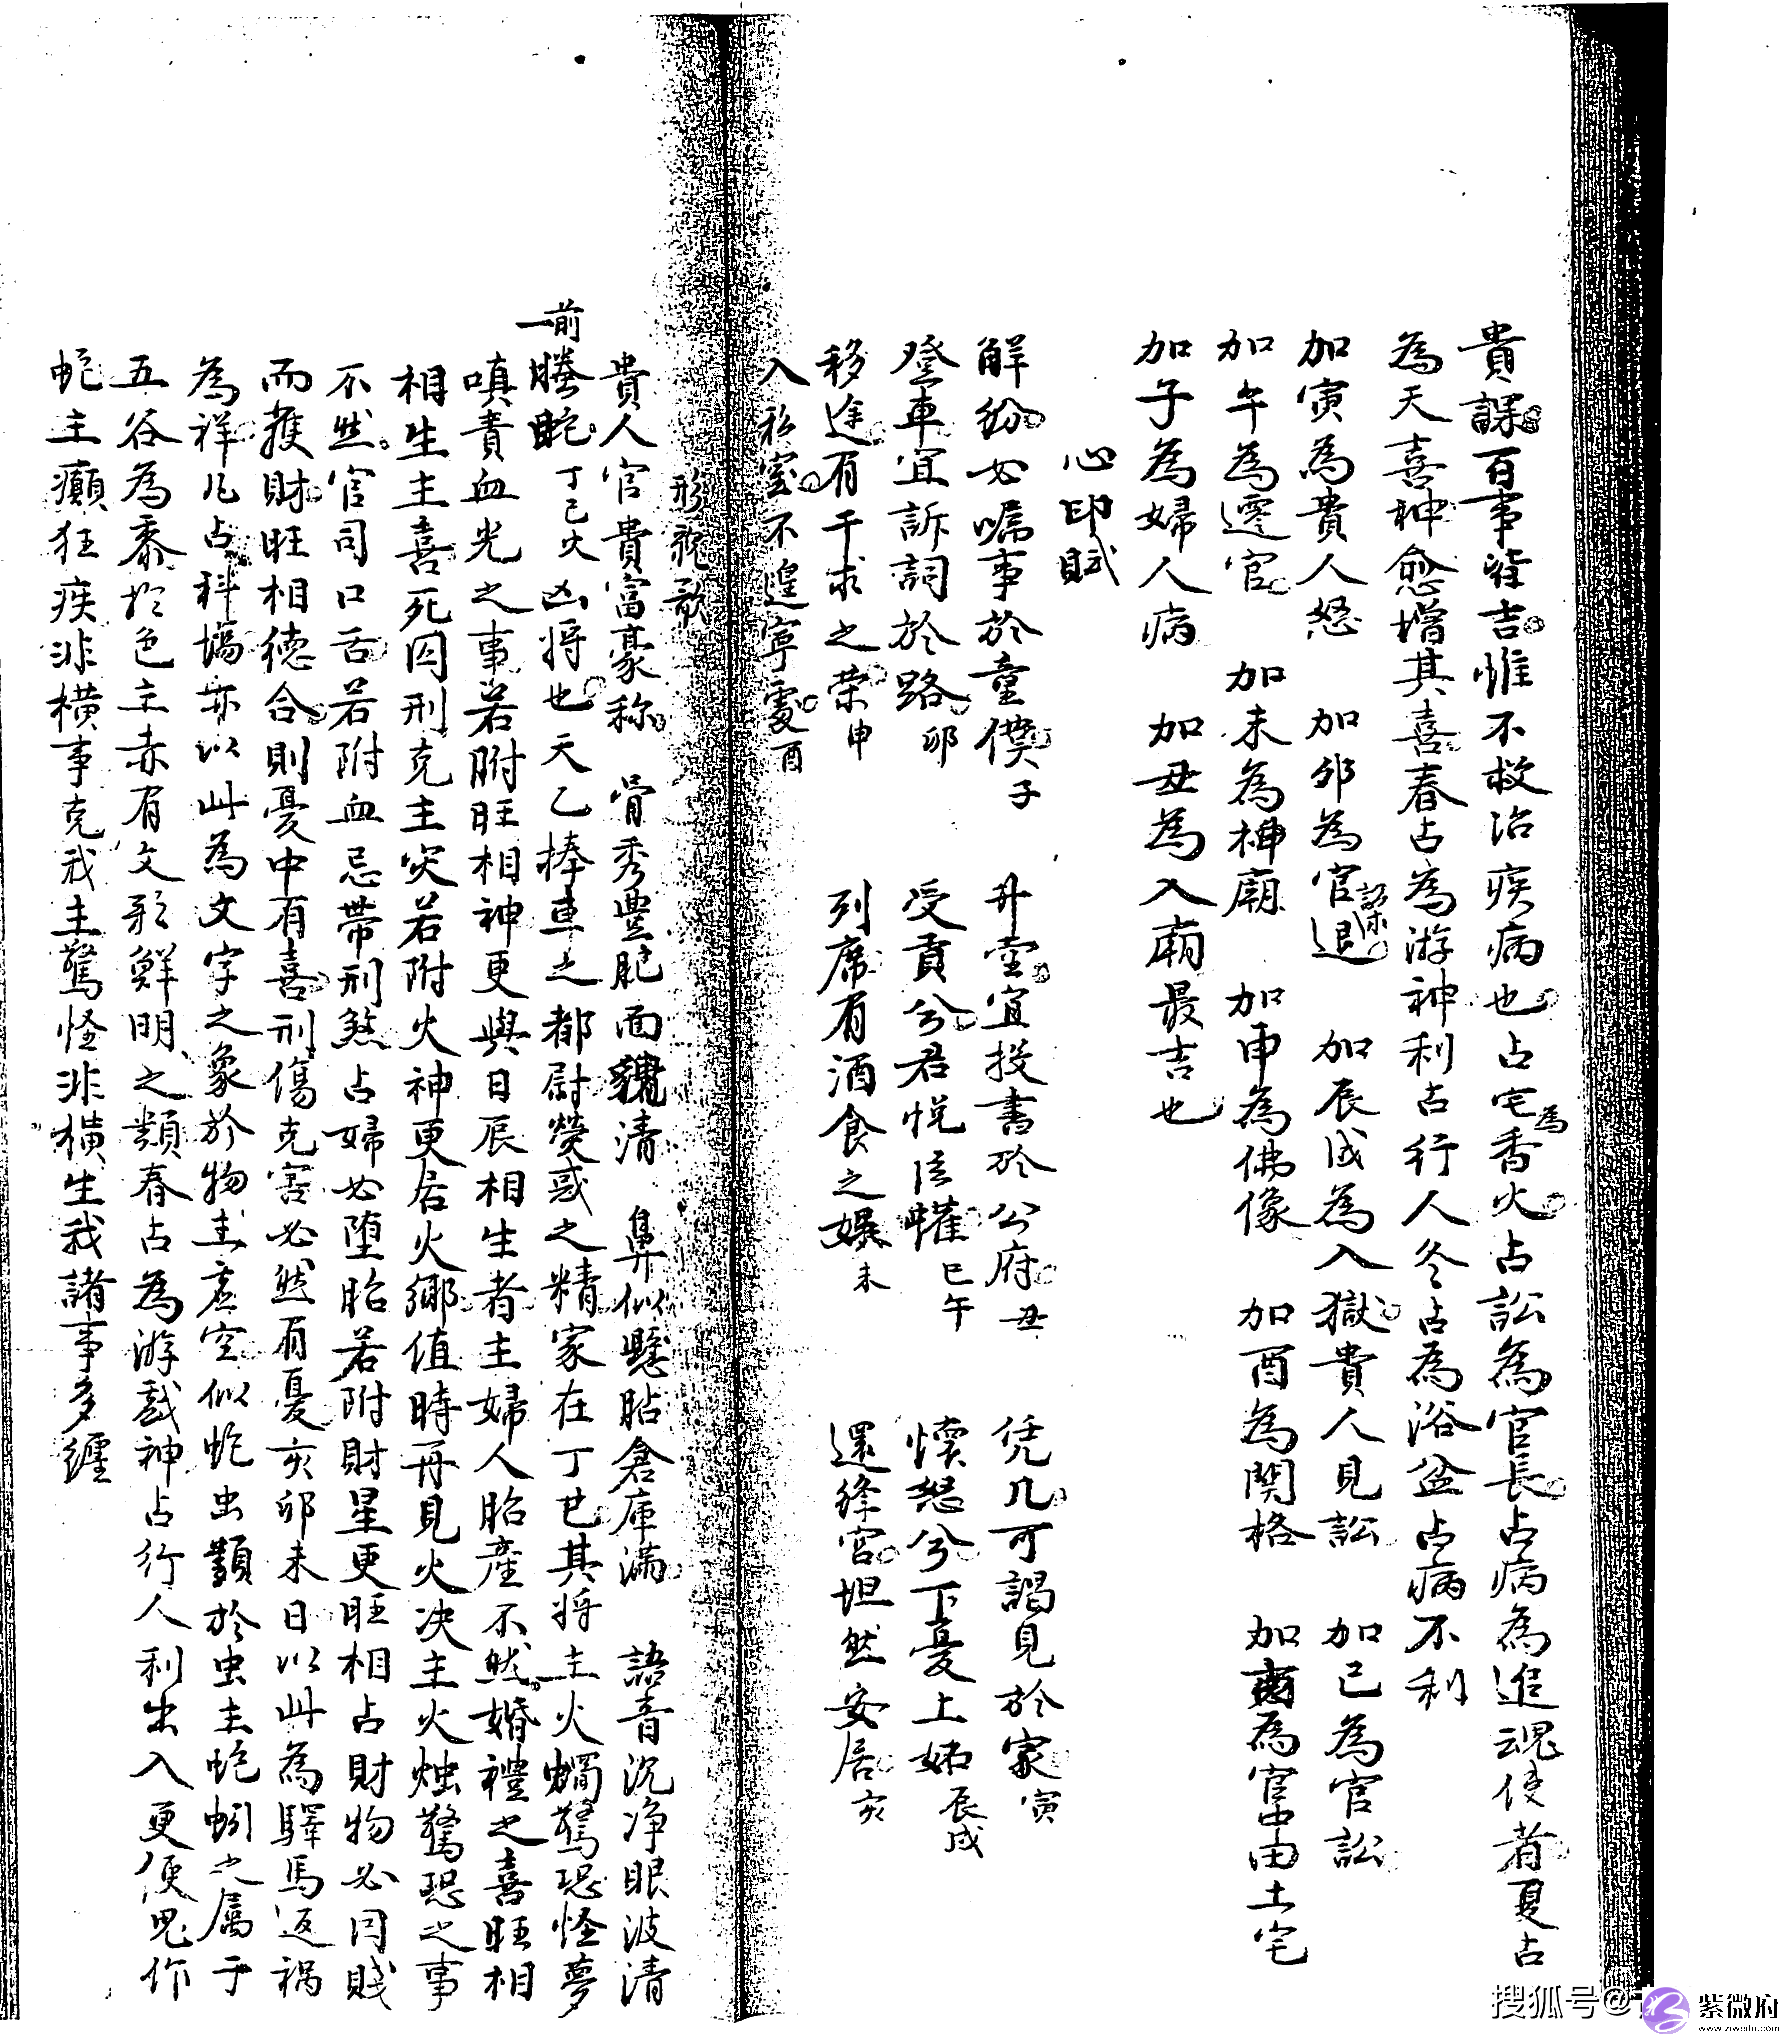 貴課百事皆吉惟不救治疾病也占宅為香火占訟為官長占病為追魂使者夏占
為天喜神愈增其喜春占為游神利占行人冬占為浴盆占病不利
加寅為貴人怒　加卯為官退　加辰戌為入獄貴人見訟　加巳為官訟
加午為遷官　加未為神廟　加申為佛像　加酉為関格　加為富田土宅
加子為婦人病　加丑為入廟最吉也
心印賦
解紛必嘱事於童僕子　升堂宜投書於公府丑　凭几可謁見於家寅
登車宜訴詞於路卯　受貢兮君悅臣懽巳午　愩怒兮下憂上妬辰戌
移途有干求之榮申　列席有酒食之娛未　還絳宮坦然安居亥
入私室不遑寧處酉
形貌歌
貴人官貴富豪称　骨秀豐肥面貌清　鼻似懸胆倉庫滿　語音沉净眼波清
前一螣蛇丁巳火　凶将也天乙捧車之都尉熒惑之精家在丁巳其将主火燭驚恐怪夢
嗔責血光之事若附旺相神更與日辰相生者主婦人胎産不然婚禮之喜旺相
相生主喜死囚刑克主灾若附火神更居火鄉值時再見火决主火烛驚恐之事
不然官司口舌若附血忌帶刑煞占婦必墮胎若附財星更旺相占財物必因賤
而獲財旺相德合則憂中有喜刑傷克害必然有憂亥卯未日以此為驛馬返禍
為祥凡占科場亦以此為文字之象於物主虛空似蛇出類於虫主蛇蚓之属于
五谷為黍於色主赤有文形鮮明之類春占為游戲神占行人利出入更便鬼作
蛇主癲狂疾非横事克我主驚怪非横生我諸事多纏
搜狐号@
紫微府
www.ziweifu.com